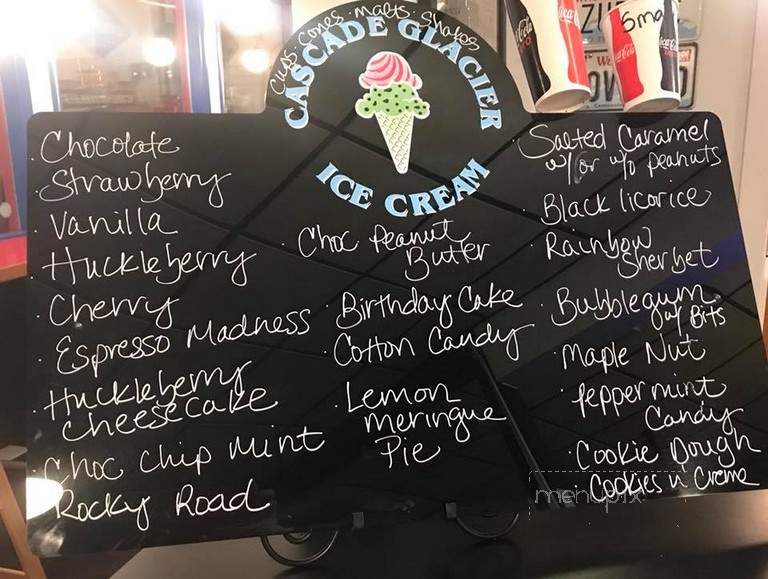 Cups. Cones. malts. Shakes
CASCADE GLACIER
ICE CREAM
Chocolate
Strawberry
Vanilla
Huckleberry
Cherry
Espresso Madness
Huckleberry
Cheesecake
Choc Chip Mint
Rocky Road
Choc Peanut
Butter
Birthday Cake
Cotton Candy
Lemon
meringue
Pie
Salted Caramel
w/ or w/o peanuts
Black licorice
Rainbow
Sherbet
Bubblegum
w/ Bits
Maple Nut
Peppermint
Candy
Cookie Dough
Cookies n Creme
Coca-Cola
Sma
menupix